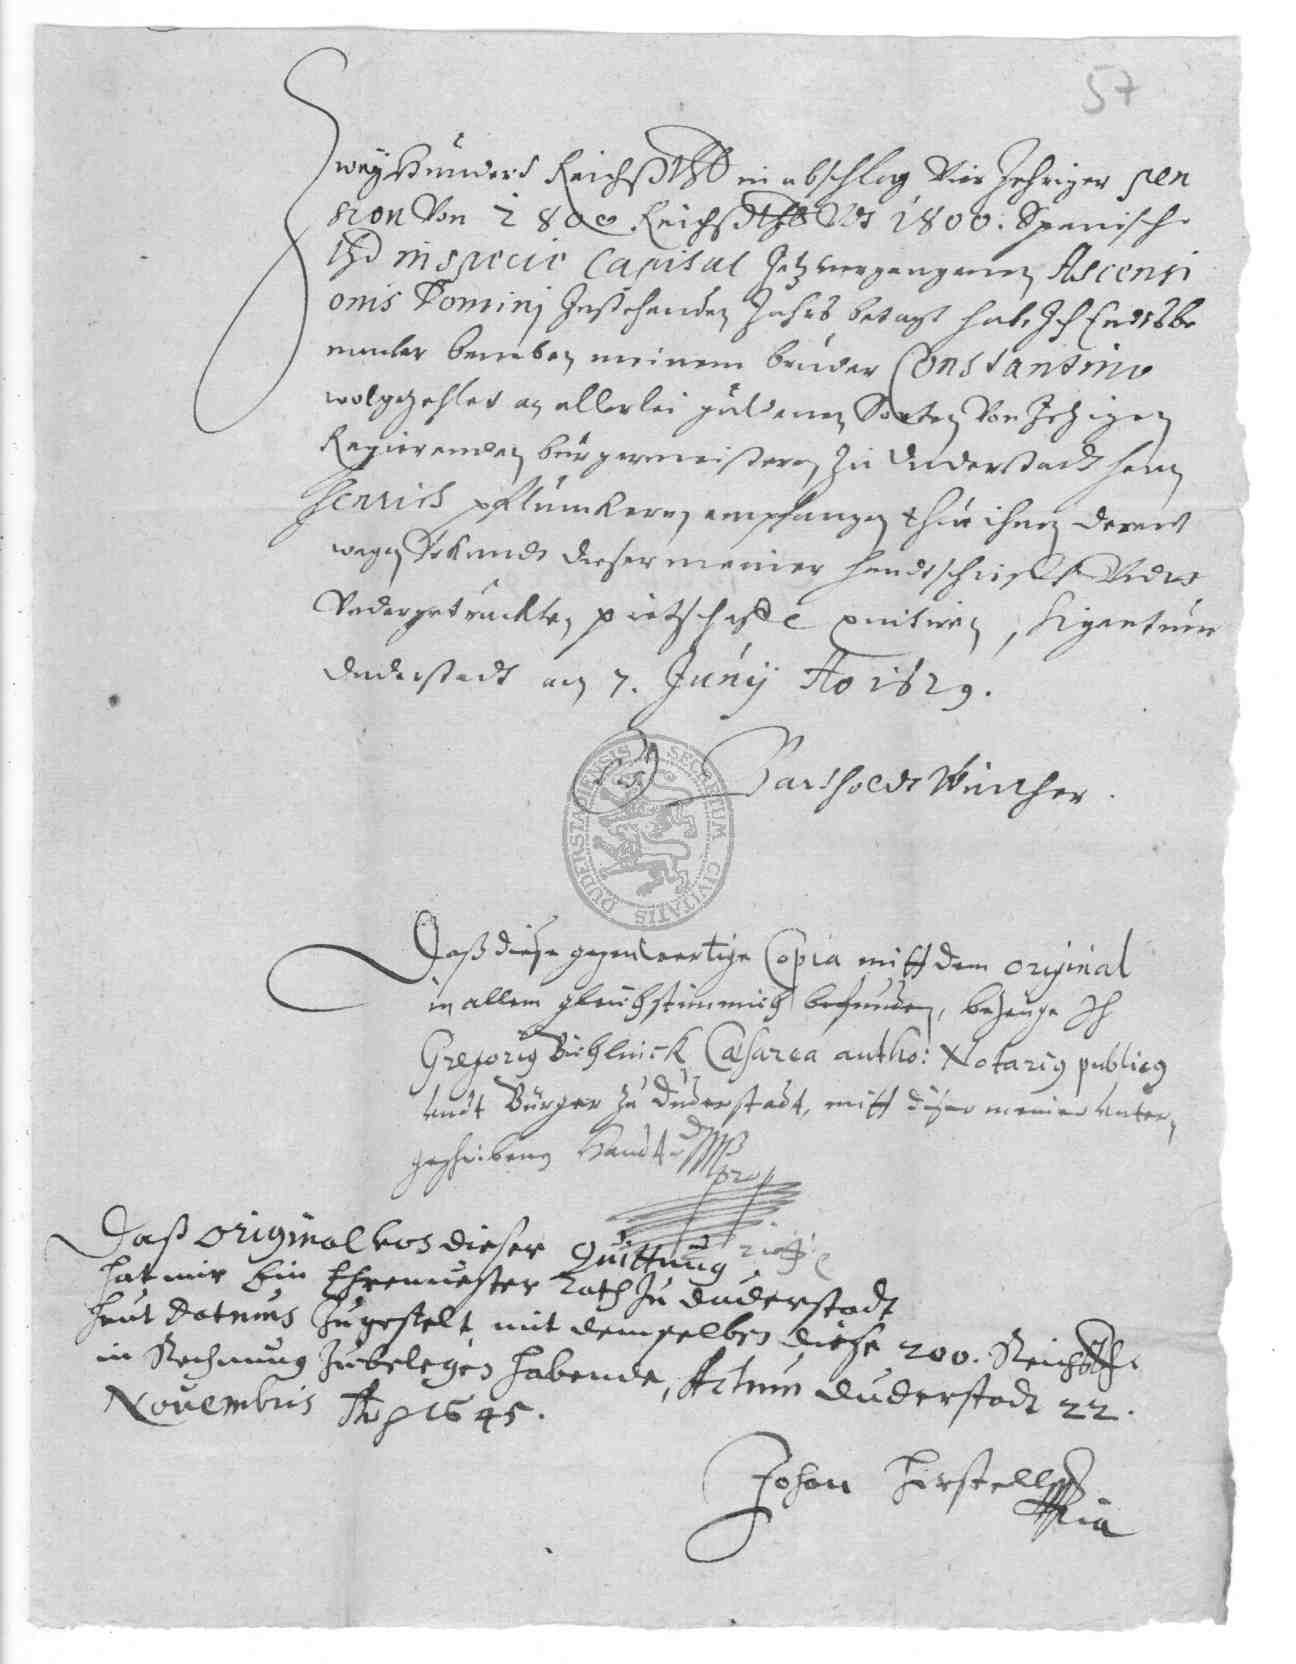 57
Zwey Hundert Reichßthlr in abschlag Vier Jehriger pen
sion Von 2800 Reichßthlr Vndt 1800. Spanische
thlr in specie Capital Jetzvergangenen Ascensi
onis Dominj Jnstehenden Jahrs betagt hab Jch Endtsbe
nanter benebenn meinem bruder Constantino
wolgezehlet an allerlei guldenen Sorten Von Jetzigen
Regierenden bürgermeistern zu Duderstadt herrn
Henrich pflümkern, empfangen thue ihnen derent
wegen Vrkundt dieser meiner handtschrifft Vndt
Vndergetruckten pietschafft quitiren, Signatum
Duderstadt am 7. Junij Ao 1629.
Bartholdt Winther
SECRETUM CIVITATIS DUDERSTADIENSIS
Daß diese gegenwertige Copia mitt dem original
in allem gleichstimmich befunden, bezeuge Ich
Gregorius Cæsarea autho: Notarius publicus
undt Bürger zu Duderstadt, mitt dieser meiner unter
geschribenen Handt
Daß original von dieser Quittung
hat mir Ein Ehrenuester Rath zu duderstadt
heut Datums zugestelt, mit demselben diese 200. Reichsthlr
in Rechnung zubelegen habende, Actum duderstadt 22.
Nouembris Ao 1645.
Johan Herstell
mpria